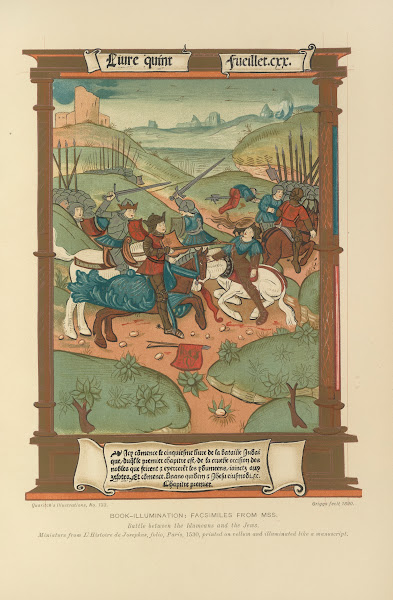 Liure quint Fueillet.cxx.
Icy cõmence le cinquiesme liure de la bataille Iudai
que, duq̃l le premier chapitre est, de la cruelle occision des
nobles que feirent
Et cõmence.
Chapitre premier.
Quaritch's Illustrations, No. 125. Griggs fecit 1890.
BOOK-ILLUMINATION: FACSIMILES FROM MSS.
Battle between the Idumeans and the Jews.
Miniature from L'Histoire de Josephus, folio, Paris, 1530, printed on vellum and illuminated like a manuscript.